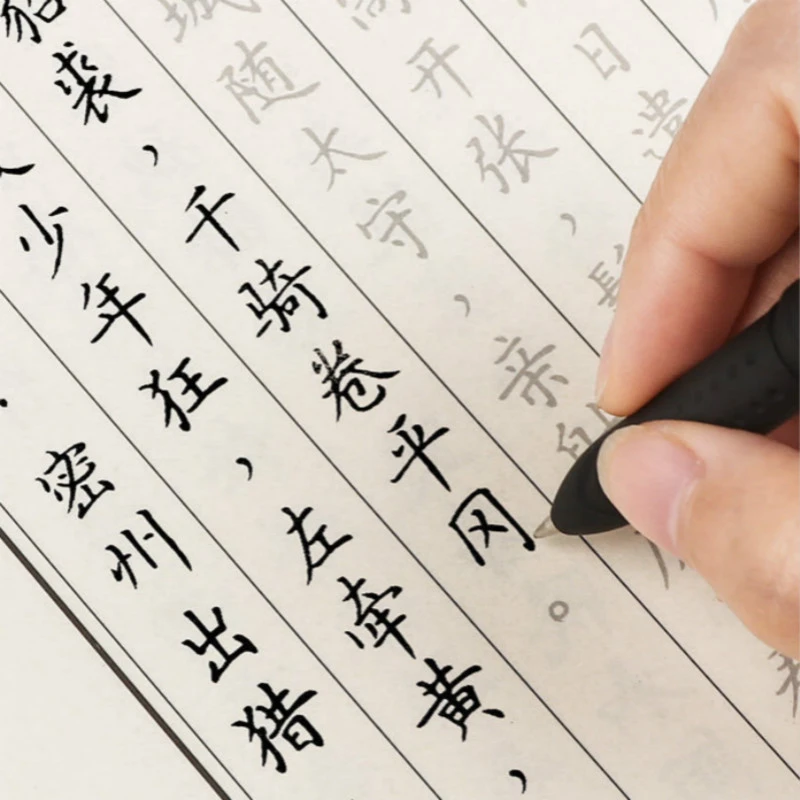 密州出猎
少年狂，左牵黄，
裘，千骑卷平冈。
城随太守，亲
尚开张，
日遣